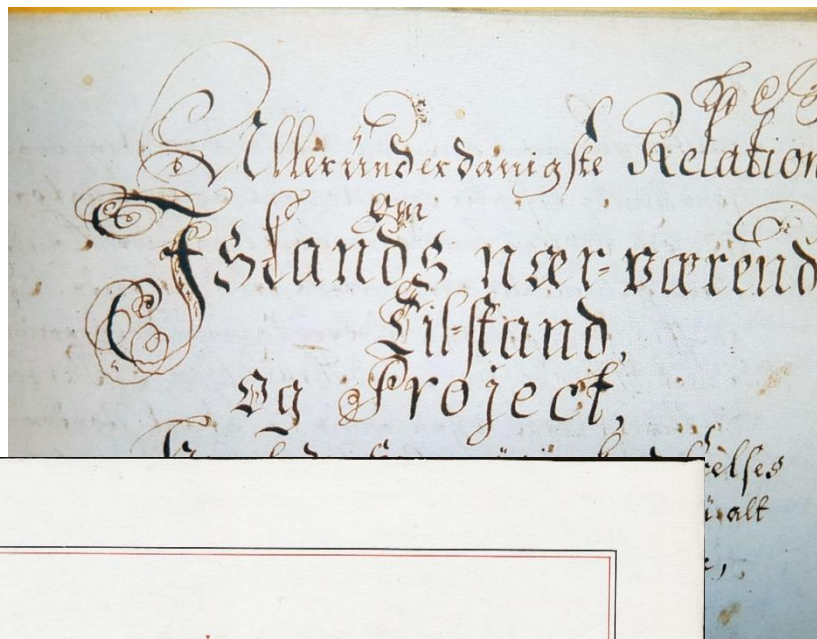 Alleründerdanigste Relation
om
Islands nær-værend
Til-stand,
og Project,
elses
alt